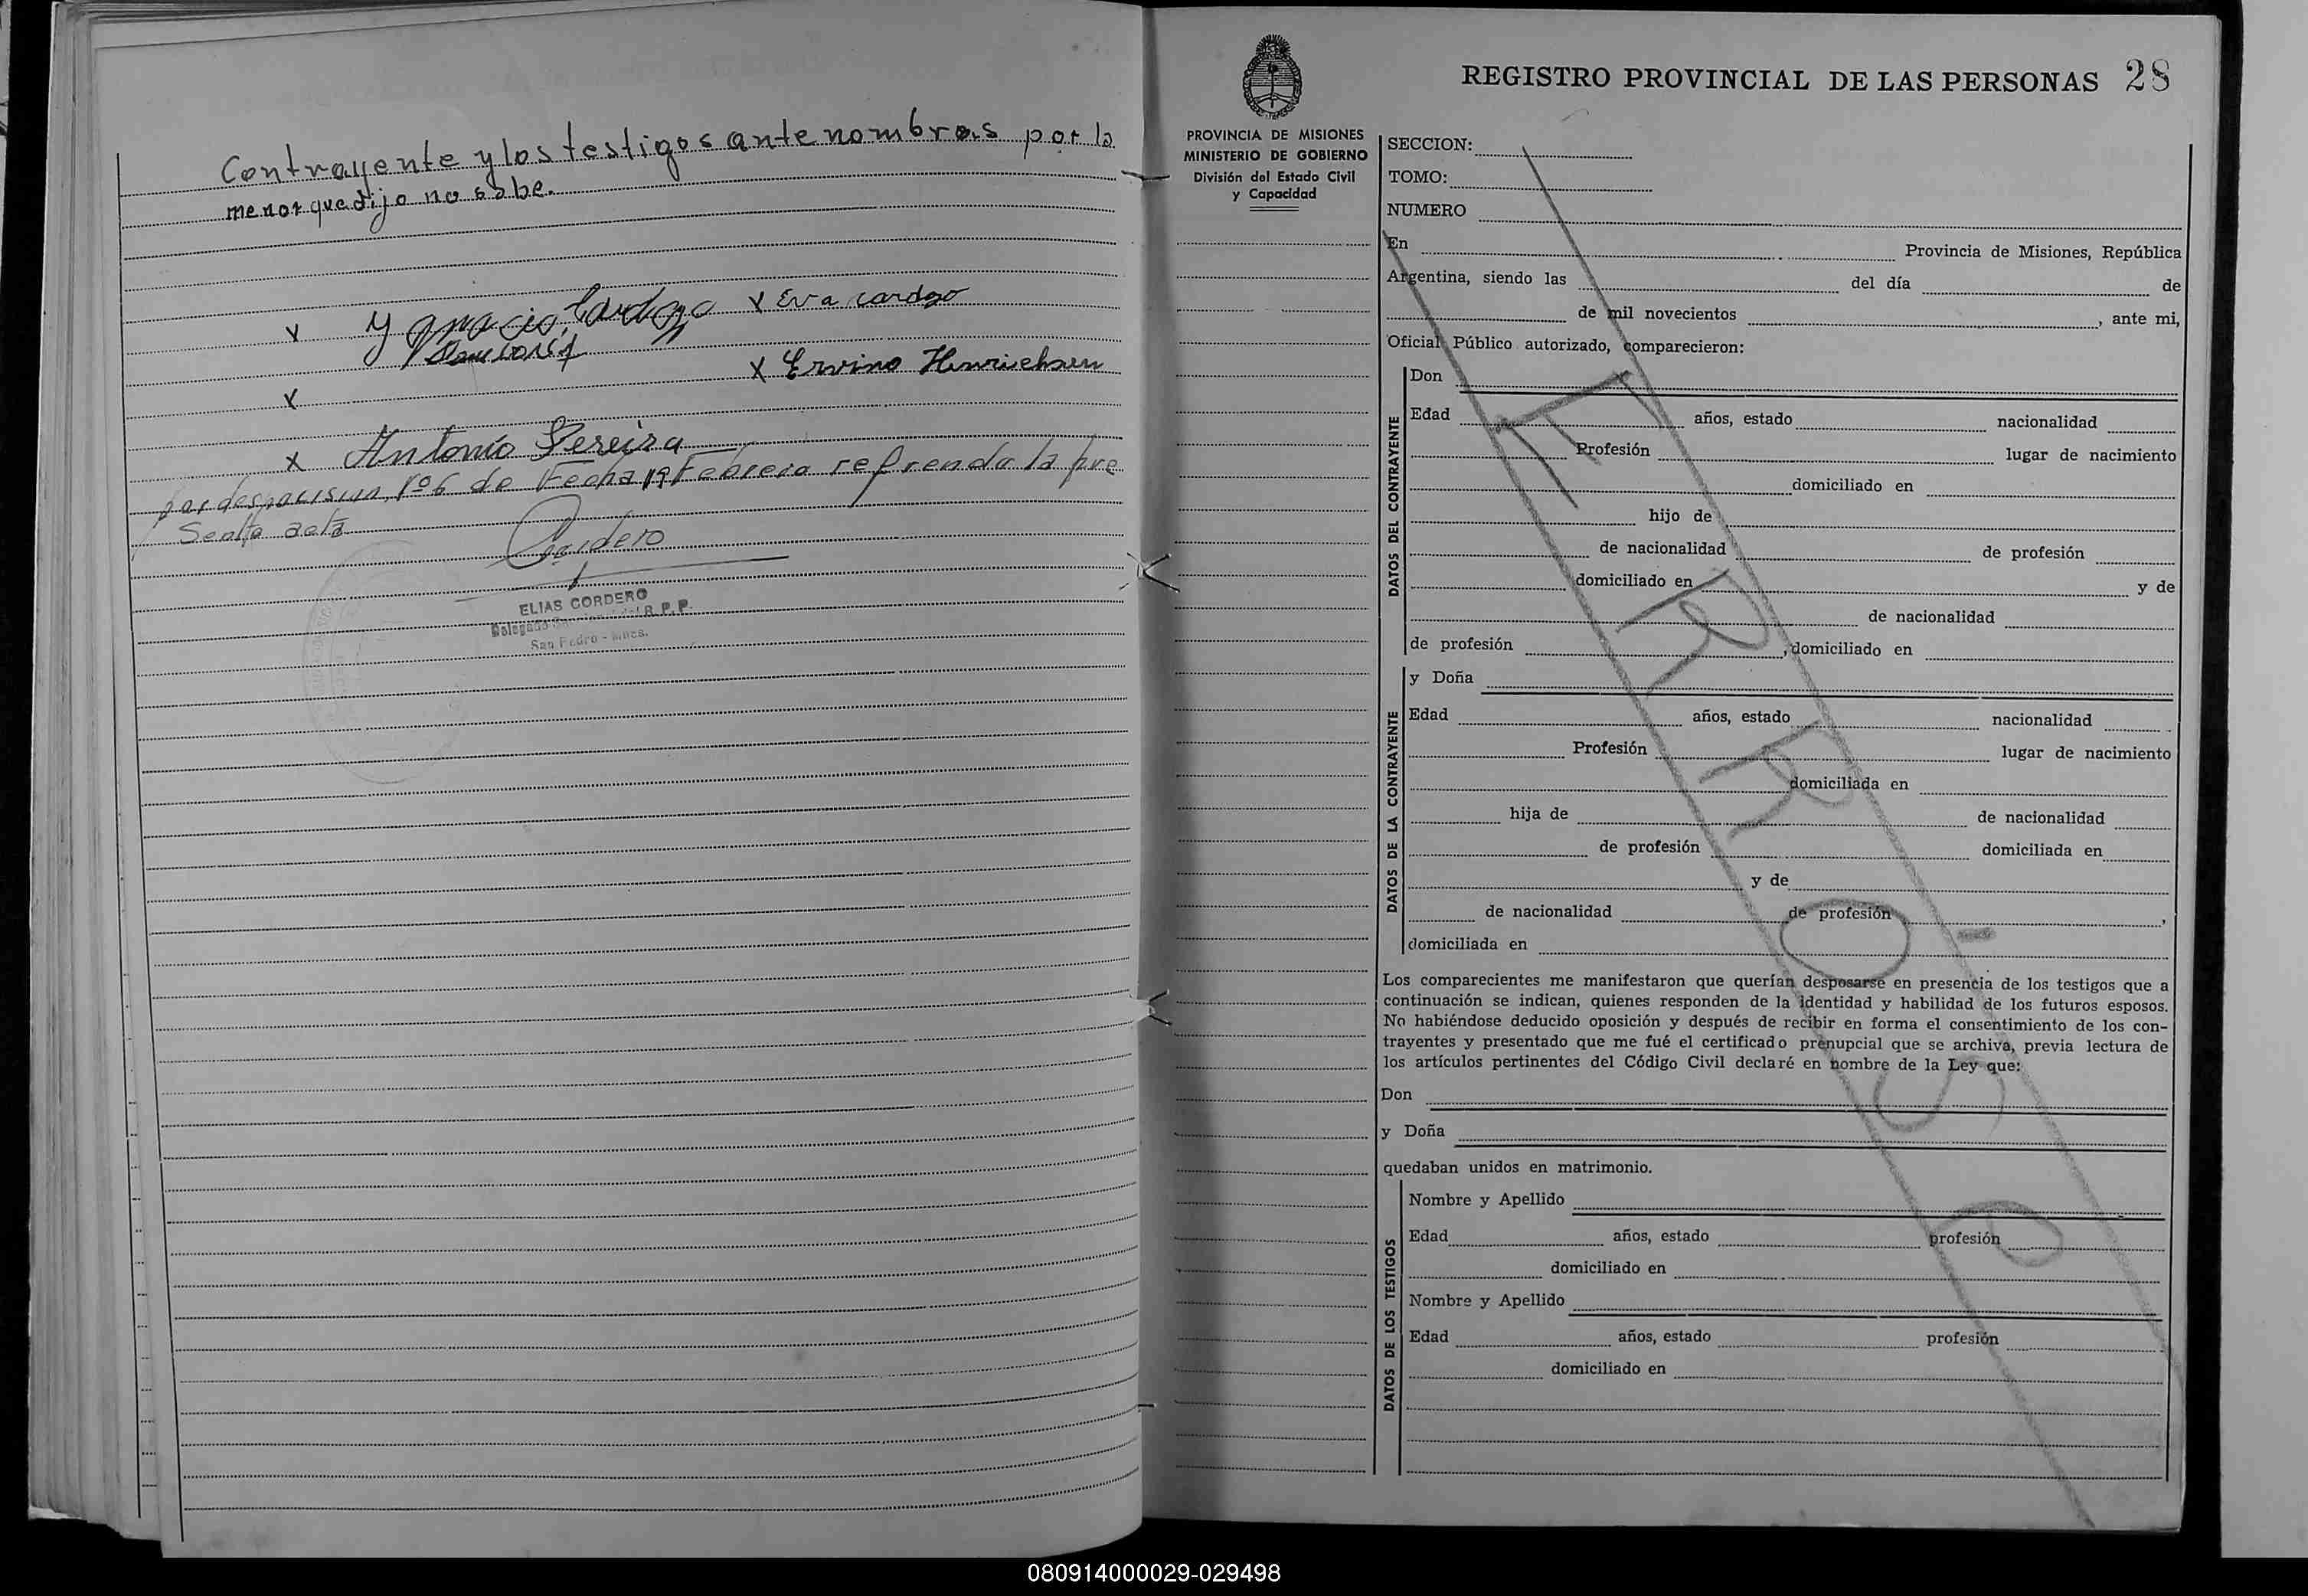 Contrayente y los testigos ante nombras por la
menor que dijo no sabe.
x Ygnacio Cardozo x Eva cardozo
x x Ervino Henrichsen
x Antonio Pereira
por desposision, Nº 6 de Fecha 19 Febrero refrenda la pre
Senta acta
Cordero
ELIAS CORDERO
Delegado R. P. P.
San Pedro - Mnes.
REGISTRO PROVINCIAL DE LAS PERSONAS 28
PROVINCIA DE MISIONES
MINISTERIO DE GOBIERNO
División del Estado Civil
y Capacidad
SECCION:
TOMO:
NUMERO
En Provincia de Misiones, República
Argentina, siendo las del día de
de mil novecientos , ante mi,
Oficial Público autorizado, comparecieron:
DATOS DEL CONTRAYENTE
Don
Edad años, estado nacionalidad
Profesión lugar de nacimiento
domiciliado en
hijo de
de nacionalidad de profesión
domiciliado en y de
de nacionalidad
de profesión , domiciliado en
DATOS DE LA CONTRAYENTE
y Doña
Edad años, estado nacionalidad
Profesión lugar de nacimiento
domiciliada en
hija de de nacionalidad
de profesión domiciliada en
y de
de nacionalidad de profesión ,
domiciliada en
Los comparecientes me manifestaron que querían desposarse en presencia de los testigos que a
continuación se indican, quienes responden de la identidad y habilidad de los futuros esposos.
No habiéndose deducido oposición y después de recibir en forma el consentimiento de los con-
trayentes y presentado que me fué el certificado prenupcial que se archiva, previa lectura de
los artículos pertinentes del Código Civil declaré en nombre de la Ley que:
Don
y Doña
quedaban unidos en matrimonio.
DATOS DE LOS TESTIGOS
Nombre y Apellido
Edad años, estado profesión
domiciliado en
Nombre y Apellido
Edad años, estado profesión
domiciliado en
080914000029-029498